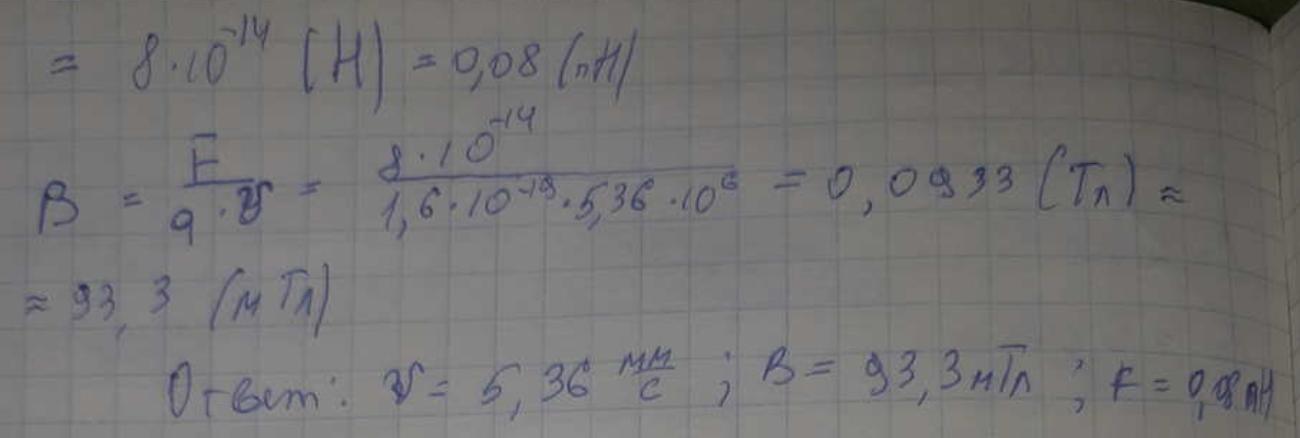 = 8·10⁻¹⁴ (Н) = 0,08 (пН)
B = F/(q·v) = 8·10⁻¹⁴/(1,6·10⁻¹⁹·5,36·10⁶) = 0,0933 (Тл) ≈
≈ 93,3 (мТл)
Ответ: v = 5,36 мм/с ; B = 93,3 мТл ; F = 0,08 пН